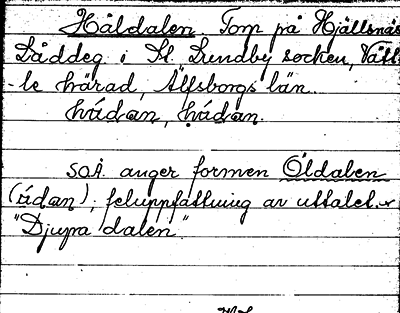 Håldalen. Torp på Hjällsnäs
Låddeg i St. Lundby socken, Vätt-
le härad, Älfsborgs län.
hádan, hádan.
SOÄ. anger formen Öldalen
(ídan); feluppfattning av uttalet.
"Djupa dalen"